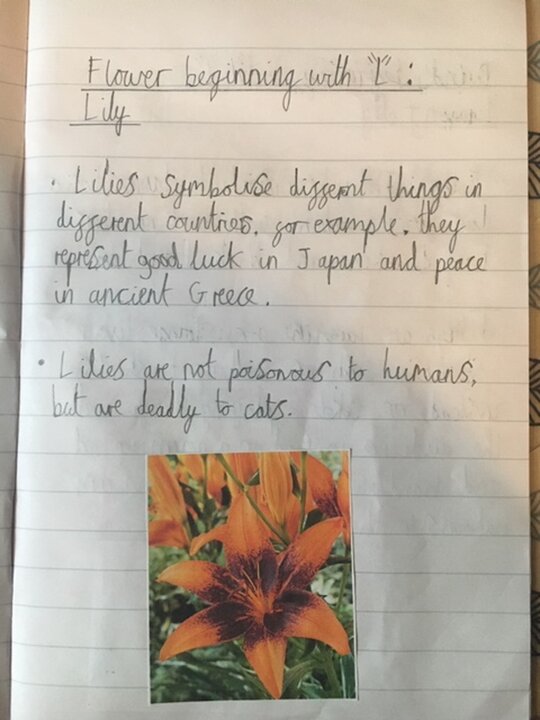 Flower beginning with "L" :
Lily
• Lilies symbolise different things in
different countries, for example, they
represent good luck in Japan and peace
in ancient Greece.
• Lilies are not poisonous to humans,
but are deadly to cats.